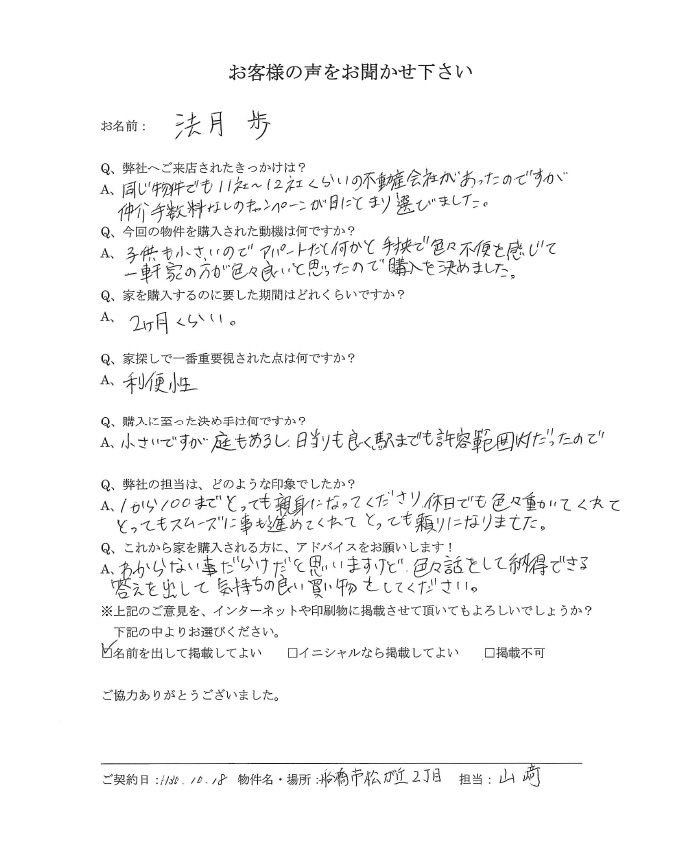 お客様の声をお聞かせ下さい
お名前： 法月 歩
Q、弊社へご来店されたきっかけは？
A、同じ物件でも11社～12社くらいの不動産会社があったのですが
仲介手数料なしのキャンペーンが目にとまり選びました。
Q、今回の物件を購入された動機は何ですか？
A、子供も小さいのでアパートだと何かと手狭で色々不便を感じて
一軒家の方が色々良いと思ったので購入を決めました。
Q、家を購入するのに要した期間はどれくらいですか？
A、2ヶ月くらい。
Q、家探しで一番重要視された点は何ですか？
A、利便性
Q、購入に至った決め手は何ですか？
A、小さいですが庭もあるし、日当りも良く駅までも許容範囲内だったので
Q、弊社の担当は、どのような印象でしたか？
A、1から100までとっても親身になってくださり、休日でも色々動いてくれて
とってもスムーズに事も進めてくれてとっても頼りになりました。
Q、これから家を購入される方に、アドバイスをお願いします！
A、わからない事だらけだと思いますけど、色々話をして納得できる
答えを出して気持ちの良い買い物をしてください。
※上記のご意見を、インターネットや印刷物に掲載させて頂いてもよろしいでしょうか？
下記の中よりお選びください。
☑名前を出して掲載してよい □イニシャルなら掲載してよい □掲載不可
ご協力ありがとうございました。
ご契約日：H30.10.18 物件名・場所：船橋市松が丘2丁目 担当：山﨑